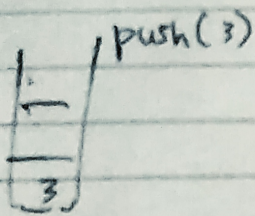 push(3)
3